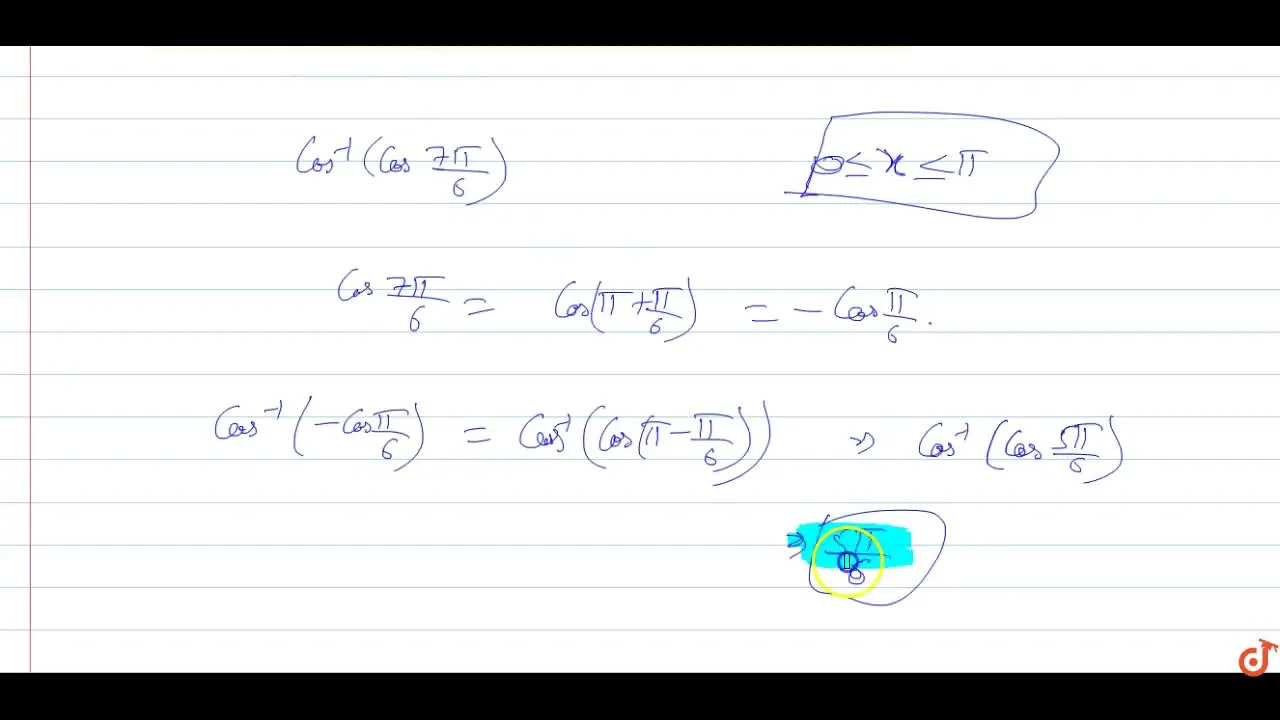 Cos⁻¹(Cos 7π/6)
0 ≤ x ≤ π
Cos 7π/6 = Cos(π + π/6) = - Cos π/6.
Cos⁻¹(-Cos π/6) = Cos⁻¹(Cos(π - π/6)) ⇒ Cos⁻¹(Cos 5π/6)
⇒ 5π/6